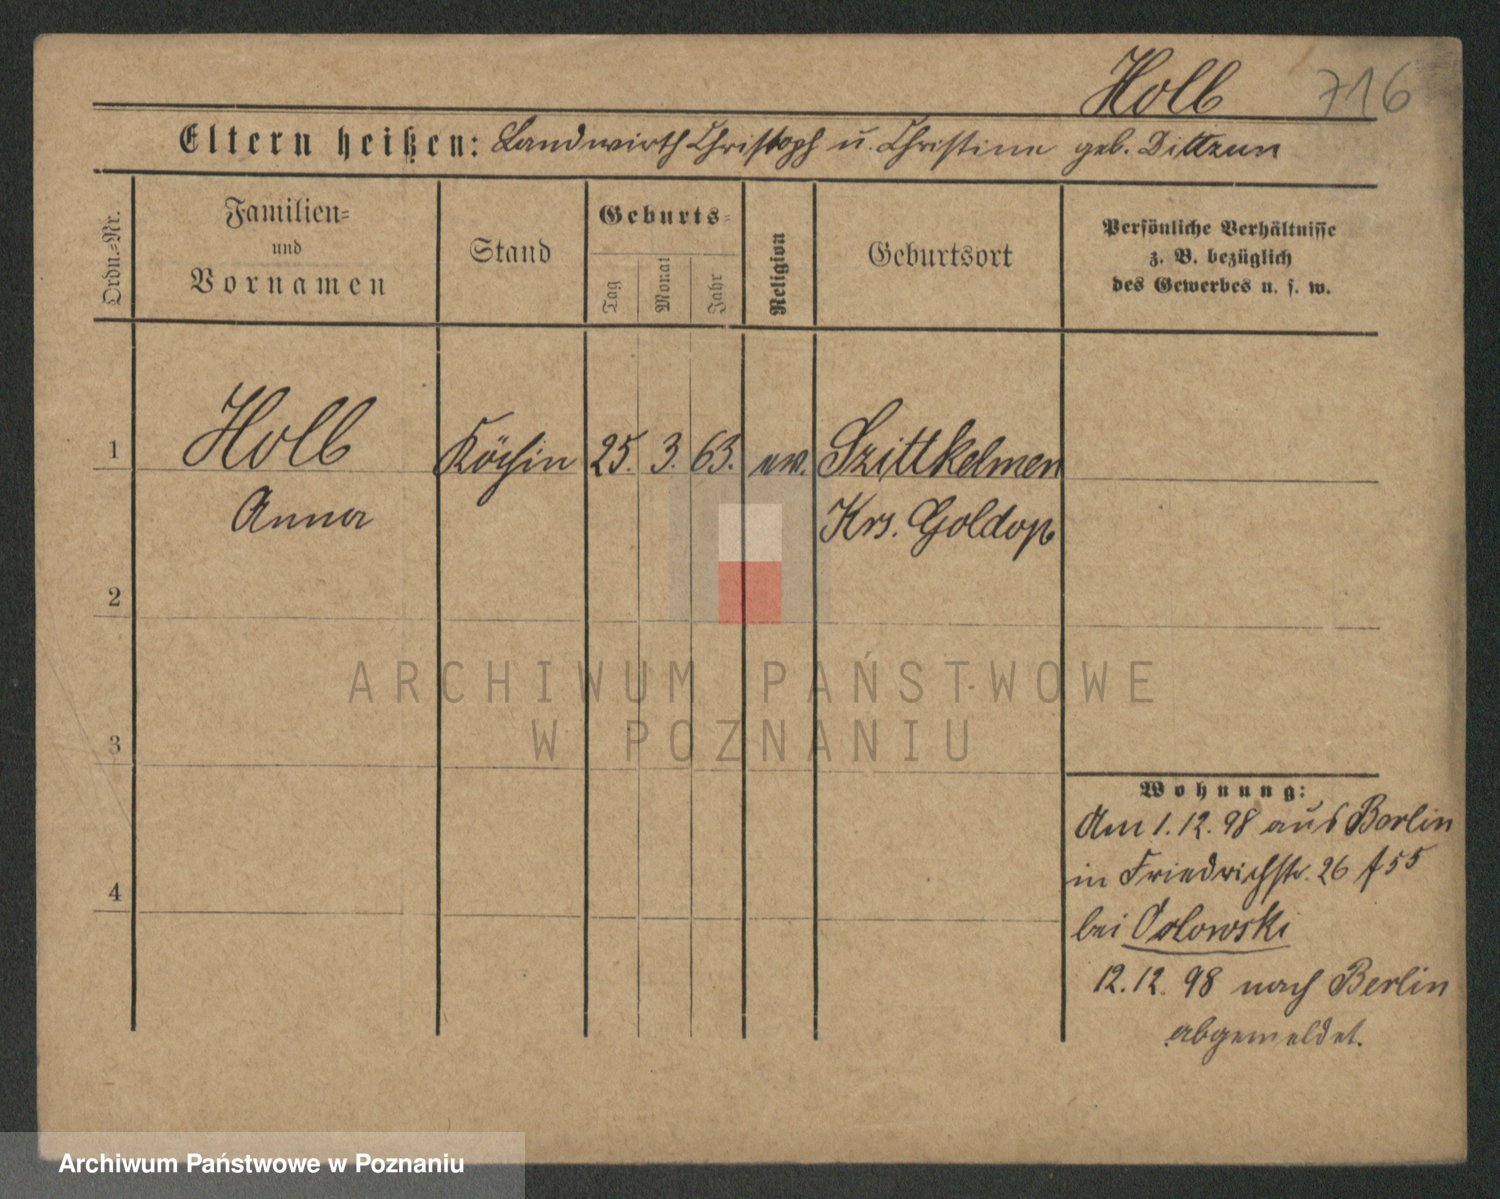 Holb 716
Eltern heißen: Landwirth Christoph u. Christine geb. Dittzun
Ordn.=Nr.
Familien=
und
Vornamen
Stand
Geburts=
Tag
Monat
Jahr
Religion
Geburtsort
Persönliche Verhältnisse
z. B. bezüglich
des Gewerbes u. s. w.
1 Holb Köchin 25. 3. 63. ev. Szittkehmen
Anna Krs. Goldap
2
3
4
Wohnung:
Am 1. 12. 98 aus Berlin
in Friedrichstr. 26
bei Orlowski
12. 12. 98 nach Berlin
abgemeldet.
ARCHIWUM PAŃSTWOWE
W POZNANIU
Archiwum Państwowe w Poznaniu